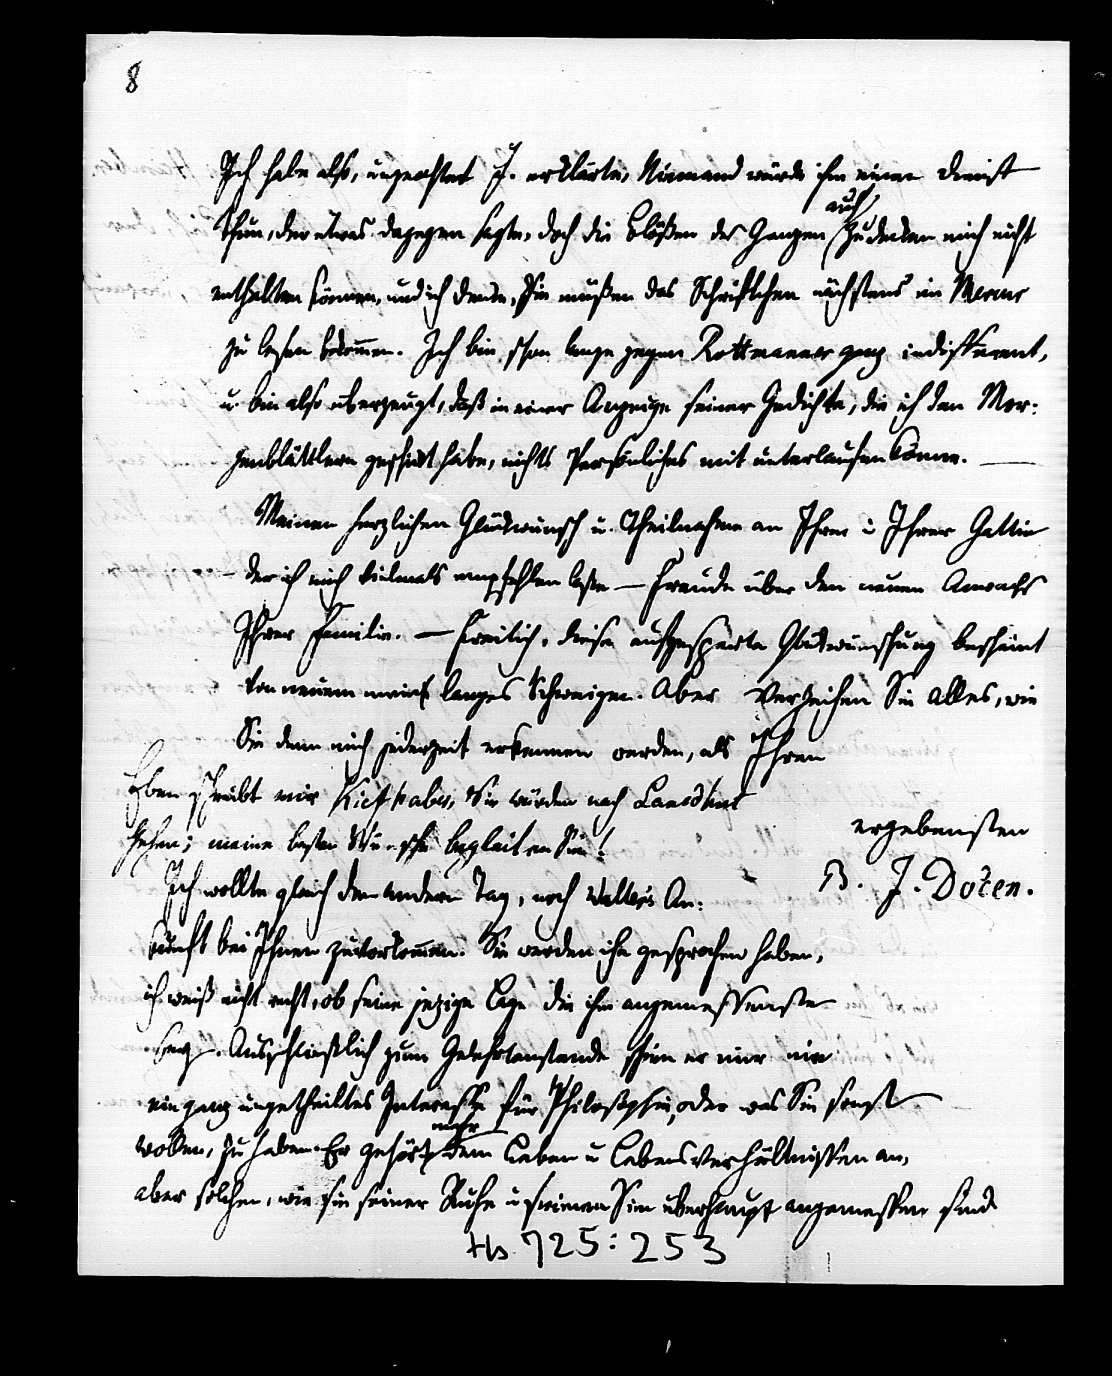 8
Ich habe also, ungeachtet J. erklärte, Niemand würde ihm einen Dienst
thun, der etwas dagegen sagte, doch die Blößen des Ganzen auch zudecken mich nicht
enthalten können, und ich denke, Sie müßen das Schriftchen nächstens im Merur
zu lesen bekommen. Ich bin schon lange gegen Rottmanner ganz indifferent,
u. bin also überzeugt, daß in einer Anzeige seiner Gedichte, die ich den Mor:
genblättlern geschickt habe, nichts Persönliches mit unterlaufen könne. —
Meinen herzlichen Glückwunsch u. Theilnahme an Ihrer u Ihrer Gattin
– der ich mich vielmals empfehlen lasse — Freude über den neuen Anwachs
Ihrer Familie. — Freilich, diese aufgesparte Glückwünschung beschämt
von neuem mein langes Schweigen. Aber verzeihen Sie alles, wie
Sie denn mich jederzeit erkennen werden, als Ihren
ergebensten
B. J. Docen.
Eben schreibt mir Kieshaber, Sie würden nach Landshut
gehen; meine besten Wünsche begleiten Sie!
Ich wollte gleich den andern Tag, nach Walters An:
kunft bei Ihnen zuvorkommen. Sie werden ihn gesprochen haben,
ich weiß nicht recht, ob seine jezige Lage die ihm angemessenste
sey. Ausschließlich zum Gelehrtenstande schien er mir nie
ein ganz ungetheiltes Interesse für Philosophie, oder was Sie sonst
wollen, zu haben. Er gehört mehr dem Leben u Lebensverhältnissen an,
aber solchen, wie sie seiner Ruhe u seinem Sinn überhaupt angemessen sind
Hs 725:253